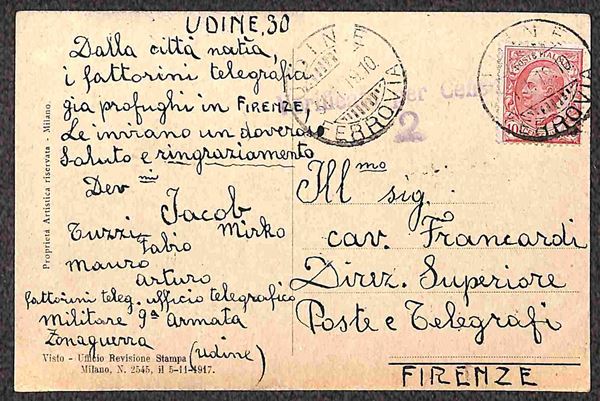 UDINE, 30
Dalla città natia,
i fattorini telegrafici
gia profughi in FIRENZE,
Le inviano un doveroso
saluto e ringraziamento
Dev mi
Jacob
Tuzzi Mirko
Fabio
Mauro
Arturo
fattorini teleg. ufficio telegrafico
Militare 9ª Armata
Zonaguerra
(Udine)
Visto - Ufficio Revisione Stampa
Milano, N. 2545, il 5-11-1917.
Proprietà Artistica riservata - Milano.
FERROVIA
2
POSTE ITALIANE
FERROVIA
Ill mo sig.
cav. Francardi
Direz. Superiore
Poste e Telegrafi
FIRENZE